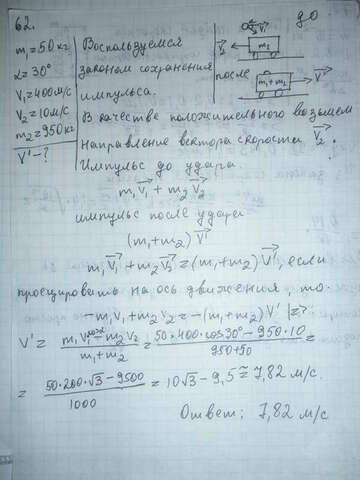 62.
до
m₁=50 кг
α=30°
V₁=400 м/с
V₂=10 м/с
m₂=950 кг
V'-?
Воспользуемся
законом сохранения
импульса.
V₁
V₂
m₂
после
m₁+m₂
V'
В качестве положительного возьмем
Направление вектора скорости V₂.
Импульс до удара
m₁V₁ + m₂V₂
импульс после удара
(m₁+m₂)V'
m₁V₁ + m₂V₂ = (m₁+m₂)V', если
проецировать на ось движения, то.
-m₁V₁ + m₂V₂ = -(m₁+m₂)V' |=>
V' = (m₁V₁cosα - m₂V₂)/(m₁+m₂) = (50·400·cos30° - 950·10)/(950+50) =
= (50·200·√3 - 9500)/1000 = 10√3 - 9,5 ≈ 7,82 м/с.
Ответ: 7,82 м/с